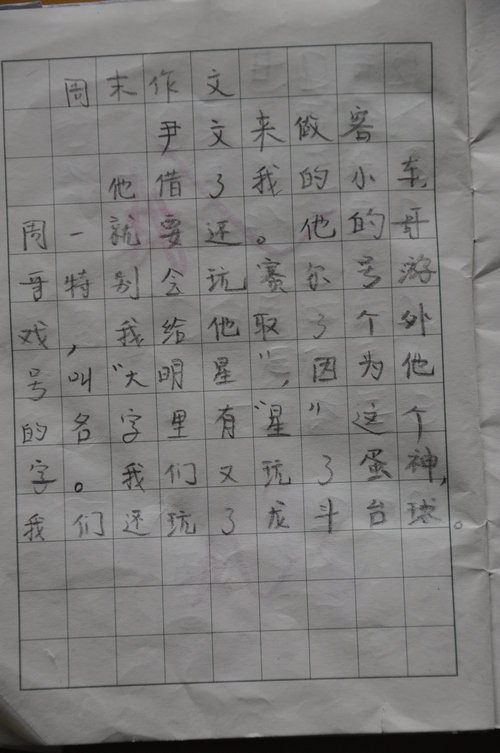 周末作文
尹文来做客
他借了我的小车,
周一就要还。他的哥
哥特别会玩赛尔号游
戏,我给他取了个外
号叫“大明星”,因为他
的名字里有“星”这个
字。我们又玩了蛋神,
我们还玩了龙斗台球。